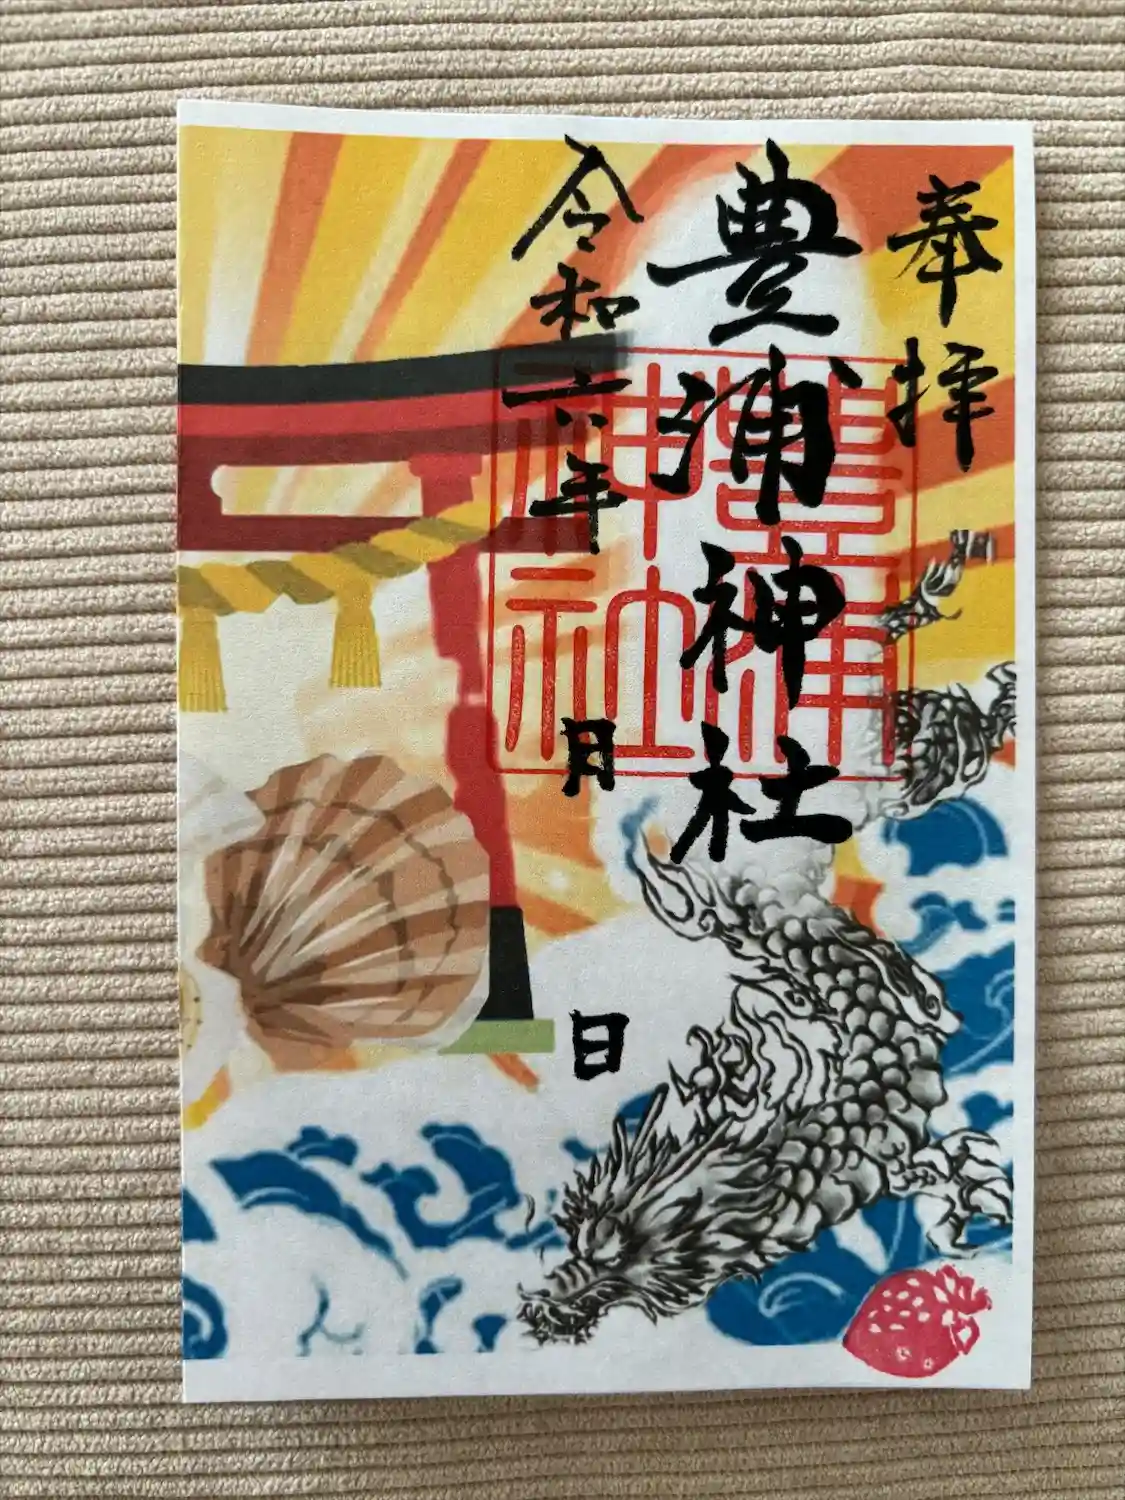 奉拝
豊浦神社
豊浦
神社
令和六年 月 日